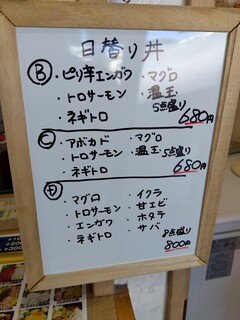 日替り丼
Ⓑ ・ピリ辛エンガワ ・マグロ
・トロサーモン ・温玉
・ネギトロ 5点盛り
680円
Ⓒ ・アボカド ・マグロ
・トロサーモン ・温玉 5点盛り
・ネギトロ 680円
・マグロ ・イクラ
・トロサーモン ・甘エビ
・エンガワ ・ホタテ
・ネギトロ ・サバ 8点盛り
800円